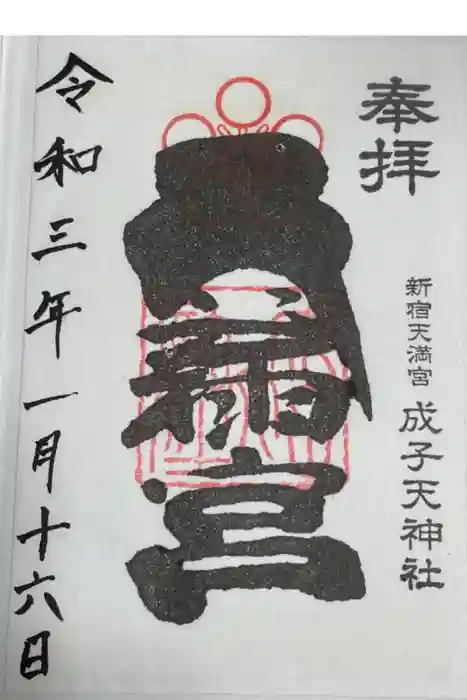 奉拝
新宿天満宮 成子天神社
宮
令和三年一月十六日